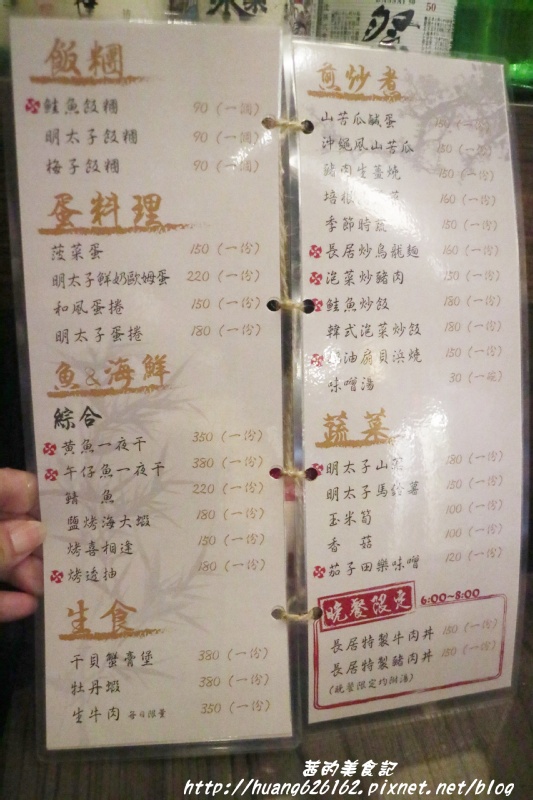 飯糰
鮭魚飯糰 90 (一個)
明太子飯糰 90 (一個)
梅子飯糰 90 (一個)
蛋料理
菠菜蛋 150 (一份)
明太子鮮奶歐姆蛋 220 (一份)
和風蛋捲 150 (一份)
明太子蛋捲 180 (一份)
魚&海鮮
綜合
黃魚一夜干 350 (一份)
午仔魚一夜干 380 (一份)
鯖魚 220 (一份)
鹽烤海大蝦 180 (一份)
烤喜相逢 150 (一份)
烤透抽 180 (一份)
生食
干貝蟹膏堡 380 (一份)
牡丹蝦 380 (一份)
生牛肉 每日限量 350 (一份)
煎炒煮
山苦瓜鹹蛋 (一份)
沖繩風山苦瓜 150 (一份)
豬肉生薑燒 (一份)
培根 160 (一份)
季節時蔬 150 (一份)
長居炒烏龍麵 160 (一份)
泡菜炒豬肉 150 (一份)
鮭魚炒飯 180 (一份)
韓式泡菜炒飯 180 (一份)
奶油扇貝浜燒 150 (一份)
味噌湯 30 (一碗)
蔬菜
明太子山藥 180 (一份)
明太子馬鈴薯 150 (一份)
玉米筍 100 (一份)
香菇 100 (一份)
茄子田樂味噌 120 (一份)
晚餐限定 6:00~8:00
長居特製牛肉丼 150 (一份)
長居特製豬肉丼 150 (一份)
(晚餐限定均附湯)
茜的美食記
http://huang626162.pixnet.net/blog